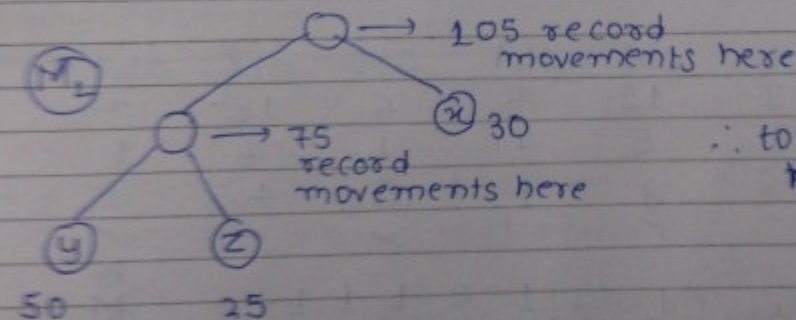 → 105 record
movements here
x 30
→ 75
record
movements here
∴ to
y z
50 25